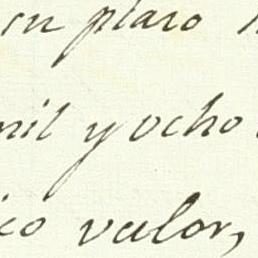 un plazo
mil y ocho
ico valor,